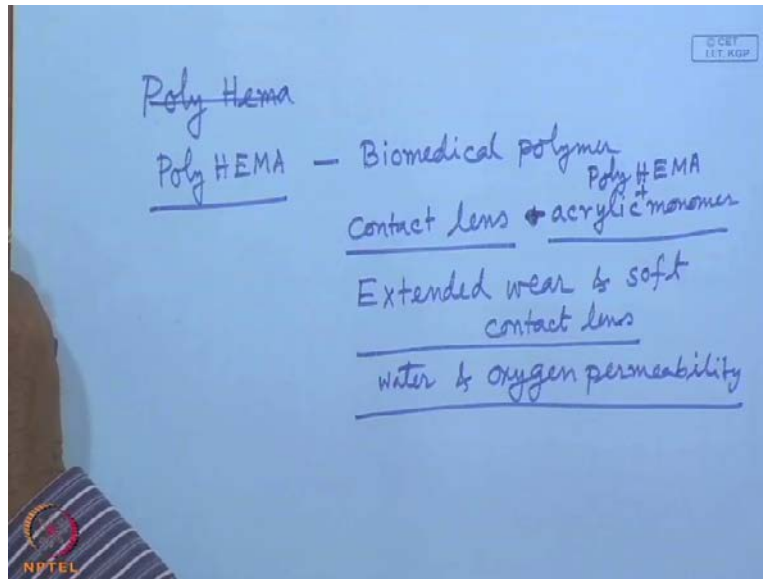 © CET
I.I.T. KGP
Poly Hema
Poly HEMA — Biomedical polymer
Poly HEMA
+
Contact lens + acrylic monomer
Extended wear & soft
contact lens
water & oxygen permeability
NPTEL